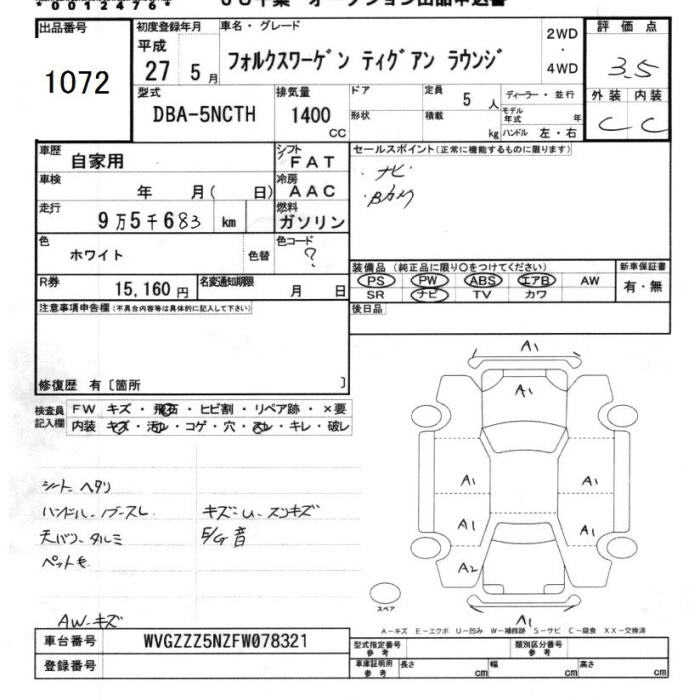 *00124876*
出品番号
1072
初度登録年月
平成
27 5月
車名・グレード
フォルクスワーゲン ティグアン ラウンジ
2WD
・
4WD
評価点
3.5
外装 内装
C C
型式
DBA-5NCTH
排気量
1400
CC
ドア
形状
定員 5 人
積載 kg
ディーラー・並行
モデル年式 年
ハンドル 左・右
車歴
自家用
シフト
FAT
車検
年 月( 日)
冷房
AAC
走行
9万5千683 km
燃料
ガソリン
色
ホワイト
色替
色コード
?
R券
15,160円
名変通知期限
月 日
セールスポイント(正常に機能するものに限ります)
・ナビ
・Bカメ
装備品(純正品に限り○をつけてください)
PS PW ABS エアB AW
SR ナビ TV カワ
新車保証書
有・無
後日品
注意事項申告欄(不具合内容等は具体的に記入して下さい)
修復歴 有〔箇所 〕
検査員
記入欄
FW キズ・飛石・ヒビ割・リペア跡・×要
内装 キズ・汚レ・コゲ・穴・スレ・キレ・破レ
シートヘタリ
ハンドル・ノブスレ
キズ・U・スリキズ
天バリ・タルミ
E/G音
ペット毛
AW-キズ
A1
A1
A1
A1
A1
A1
A2
A1
スペア
A-キズ E-エクボ U-凹み W-補修跡 S-サビ C-腐食 XX-交換済
車台番号
WVGZZZ5NZFW078321
登録番号
型式指定番号
参考
類別区分番号
参考
車庫証明用
参考
長さ cm
幅 cm
高さ cm